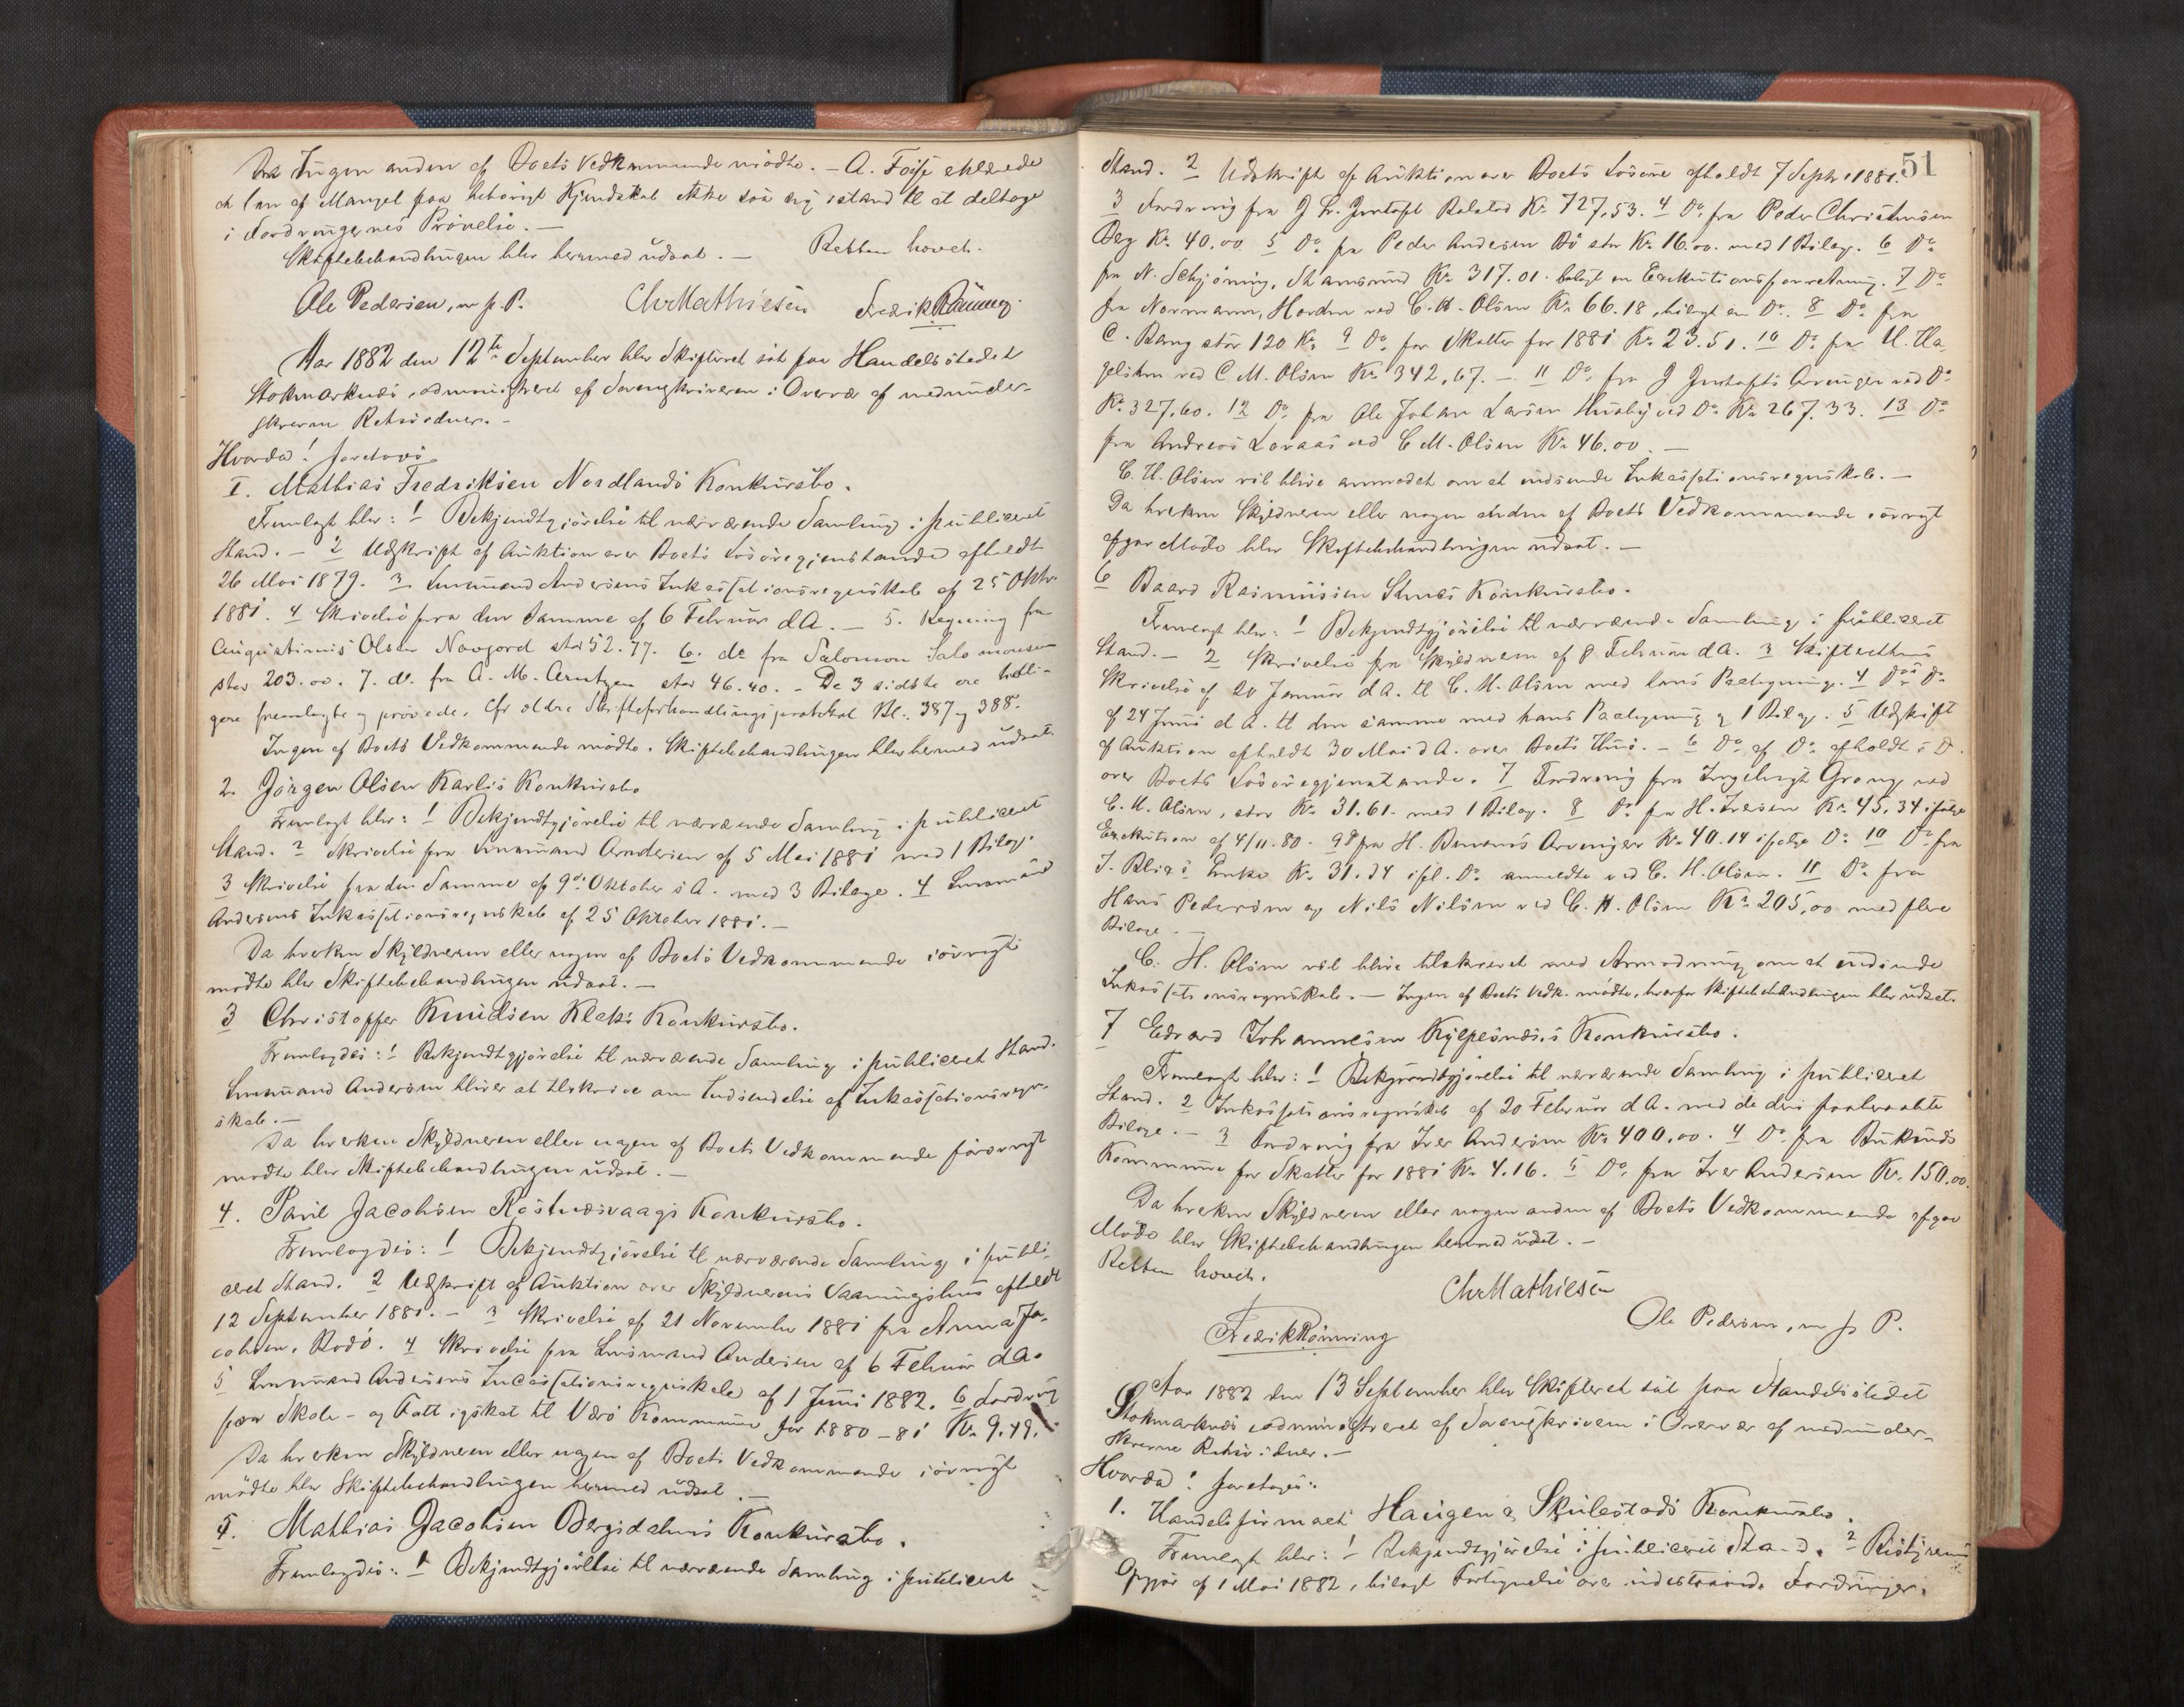 Da Ingen anden af Boets Vedkommende mødte. - A. Foss erklærede
at han af Mangel paa behørigt Kjendskab ikke saa sig istand til at deltage
i Fordringernes Prøvelse. -
Skiftebehandlingen blev hermed udsat. - Retten hævet.
Ole Pedersen, m. p. P. Chr Mathiesen Fredrik Rønning
Aar 1882 den 12te September blev Skifteret sat paa Handelsstedet
Stokmarknæs, administreret af Sorenskriveren i Overvær af medunder-
skrevne Retsvidner. -
Hvorda! foretoges
I. Mathias Fredriksen Nordlands Konkursbo.
Fremlagt blev: 1 Bekjendtgjørelse til nærværende Samling i publiceret
Stand. - 2 Udskrift af Auktion over Boets Løsøregjenstande afholdt
26 Mai 1879. 3 Lensmand Andersens Inkassationsregnskab af 25 Oktr.
1881. 4 Skrivelse fra den Samme af 6 Februar d A. - 5. Regning fra
Augustinus Olsen stor 52.77. 6. do fra Salomon Salomonsen
stor 203.00. 7. do. fra A. M. Arntzen stor 46.40. - De 3 sidste ere tidli-
gere fremlagte og prøvede, cfr ældre Skifteforhandlingsprotokol Bl. 387 og 388.
Ingen af Boets Vedkommende mødte. Skiftebehandlingen blev hermed udsat.
2. Jørgen Olsen Karlis Konkursbo
Fremlagt blev: 1 Bekjendtgjørelse til nærværende Samling i publiceret
Stand. 2 Skrivelse fra Lensmand Andersen af 5 Mai 1881 med 1 Bilag.
3 Skrivelse fra den Samme af 9de Oktober s A. med 3 Bilage. 4 Lensmand
Andersens Inkassationsregnskab af 25 Oktober 1881. -
Da hverken Skyldneren eller nogen af Boets Vedkommende iøvrigt
mødte blev Skiftebehandlingen udsat. -
3 Christoffer Knudsen Kleks Konkursbo.
Fremlagdes: 1 Bekjendtgjørelse til nærværende Samling i publiceret Stand.
Lensmand Andersen bliver at tilskrive om Indsendelse af Inkassationsregn-
skab. -
Da hverken Skyldneren eller nogen af Boets Vedkommende forøvrigt
mødte blev Skiftebehandlingen udsat. -
4. Paul Jacobsen Røstnæsvaags Konkursbo.
Fremlagdes: 1 Bekjendtgjørelse til nærværende Samling i publi-
ceret Stand. 2 Udskrift af Auktion over Skyldnerens Vaaningshus afholdt
12 September 1881. - 3 Skrivelse af 21 November 1881 fra Anna Ja-
cobsen, Bodø. 4 Skrivelse fra Lensmand Andersen af 6 Februar d A.
5 Lensmand Andersens Incassationsregnskab af 1 Juni 1882. 6 Fordring
paa Skole- og Fattigskat til Værø Kommune for 1880-81 Kr. 9.49.
Da hverken Skyldneren eller nogen af Boets Vedkommende iøvrigt
mødte blev Skiftebehandlingen hermed udsat. -
5. Mathias Jacobsen Bergsdalens Konkursbo.
Fremlagdes: 1 Bekjendtgjørelse til nærværende Samling i publiceret
51
Stand. 2 Udskrift af Auktion over Boets Løsøre afholdt 7 Septbr 1881.
3 Fordring fra J Kr. 727,53. 4 Do. fra Peder Christensen
Kr. 40.00 5 Do fra Peder Andersen Bø stor Kr. 16.00. med 1 Bilag. 6 Do
fra N. Schjøning, Stamsund Kr. 317.01. bilagt en Exekutionsforretning. 7 Do
fra Normann, ved C. H. Olsen Kr. 66.18, bilagt en Do. 8 Do fra
C. Bang stor 120 Kr. 9 Do. for Skatter for 1881 Kr. 23.51. 10 Do fra
ved C M. Olsen Kr. 342,67. - 11 Do. fra J Arvinger ved Do
Kr. 327,60. 12 Do. fra Ole Johan Larsen Husby ved Do Kr. 267.33. 13 Do
fra Andreas Lovaas ved C M. Olsen Kr. 46.00. -
C. H. Olsen vil blive anmodet om at indsende Inkassationsregnskab. -
Da hverken Skyldneren eller nogen anden af Boets Vedkommende iøvrigt
afgav Møde blev Skiftebehandlingen udsat. -
6 Baard Rasmussen Konkursbo.
Fremlagt blev: 1 Bekjendtgjørelse til nærværende Samling i publiceret
Stand. - 2 Skrivelse fra Skyldneren af 8 Februar d A. 3 Skifterettens
Skrivelse af 20 Januar d A. til C. H. Olsen med hans Paategning. 4 Dos Do
af 24 Juni d A. til den samme med hans Paategning og 1 Bilag. 5 Udskrift
af Auktion afholdt 30 Mai d A. over Boets Hus. - 6 Do. af Do. afholdt s D.
over Boets Løsøregjenstande. 7 Fordring fra Ingebrigt Grong ved
C. H. Olsen, stor Kr. 31.61. med 1 Bilag. 8 Do. fra H. Kr. 45.34 ifølge
Exekution af 4/11.80. 9 Do fra H. Arvinger Kr. 40.14 ifølge Do. 10 Do. fra
J. Enke Kr. 31.34 ifl. Do. anmeldte ved C. H. Olsen. 11 Do. fra
Hans Pedersen og Nils Nilsen ved C. H. Olsen Kr. 205,00 med flere
Bilage. -
C. H. Olsen vil blive tilskrevet med Anmodning om at indsende
Inkassationsregnskab. - Ingen af Boets Vedk. mødte, hvorfor Skiftebehandlingen blev udsat.
7 Edvard Johannesen Konkursbo.
Fremlagt blev: 1 Bekjendtgjørelse til nærværende Samling i publiceret
Stand. 2 Inkassationsregnskab af 20 Februar d A. med de deri paaberaabte
Bilage. - 3 Fordring fra Iver Andersen Kr. 400,00. 4 Do. fra Buksnæs
Kommune for Skatter for 1881 Kr. 4.16. 5 Do. fra Iver Andersen Kr. 150.00.
Da hverken Skyldneren eller nogen anden af Boets Vedkommende afgav
Møde blev Skiftebehandlingen hermed udsat. -
Retten hævet.
Chr Mathiesen
Fredrik Rønning Ole Pedersen, m p P.
Aar 1882 den 13 September blev Skifteret sat paa Handelsstedet
Stokmarknæs administreret af Sorenskriveren i Overvær af medunder-
skrevne Retsvidner. -
Hvorda! foretoges:
1. Handelsfirmaet Haugen & Skulestads Konkursbo.
Fremlagt blev: 1 Bekjendtgjørelse i publiceret Stand. 2 Bestyrerens
Opgjør af 1 Mai 1882, bilagt Fortegnelse over udestaaende Fordringer.